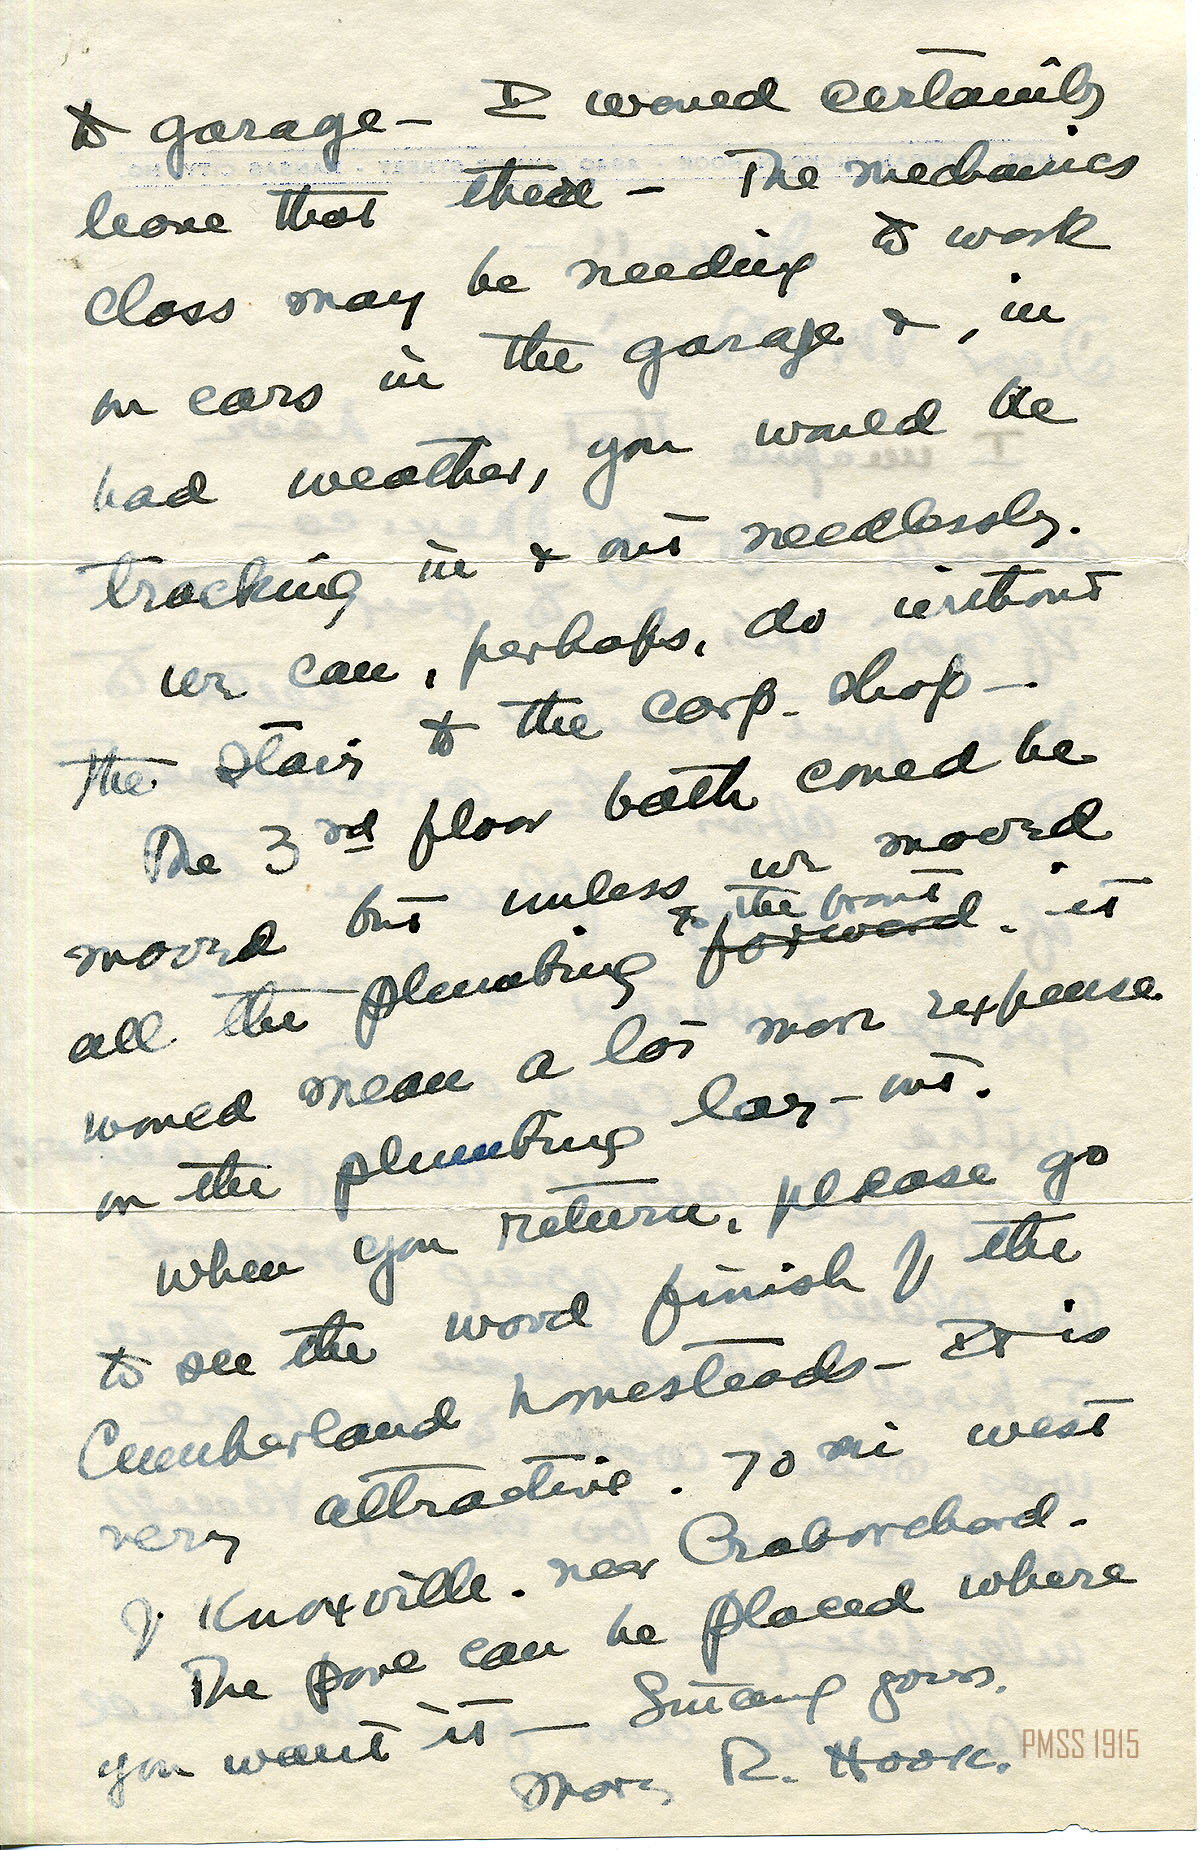 to garage — I would certainly
leave that there — The mechanics
class may be needing to work
on cars in the garage & , in
bad weather, you would be
tracking in & out needlessly.
We can, perhaps, do without
the stair to the carp. shop —
The 3rd floor bath could be
moved but unless we moved
all the plumbing to the front forward. it
would mean a lot more expense
on the plumbing lay-out.
When you return, please go
to see the wood finish of the
Cumberland homesteads — It is
very attractive. 70 mi west
of Knoxville. near Craborchard.
The can be placed where
you want it — Sincerely yours,
Mary R. Hook.
PMSS 1915